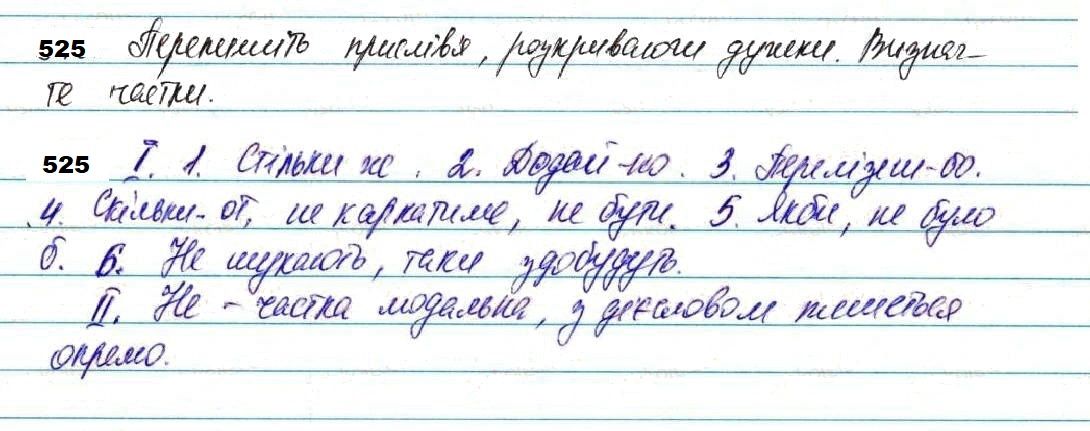 525 Перепишіть прислівя, розкриваючи дужки. Визнач-
те частки.
525 I. 1. Стільки ж. 2. Додай-но. 3. Перелізеш-бо.
4. Скільки-от, не каркатиме, не бути. 5. Якби, не було
б. 6. Не шукають, таки здобудуть.
II. Не – частка модальна, з дієсловом пишеться
окремо.